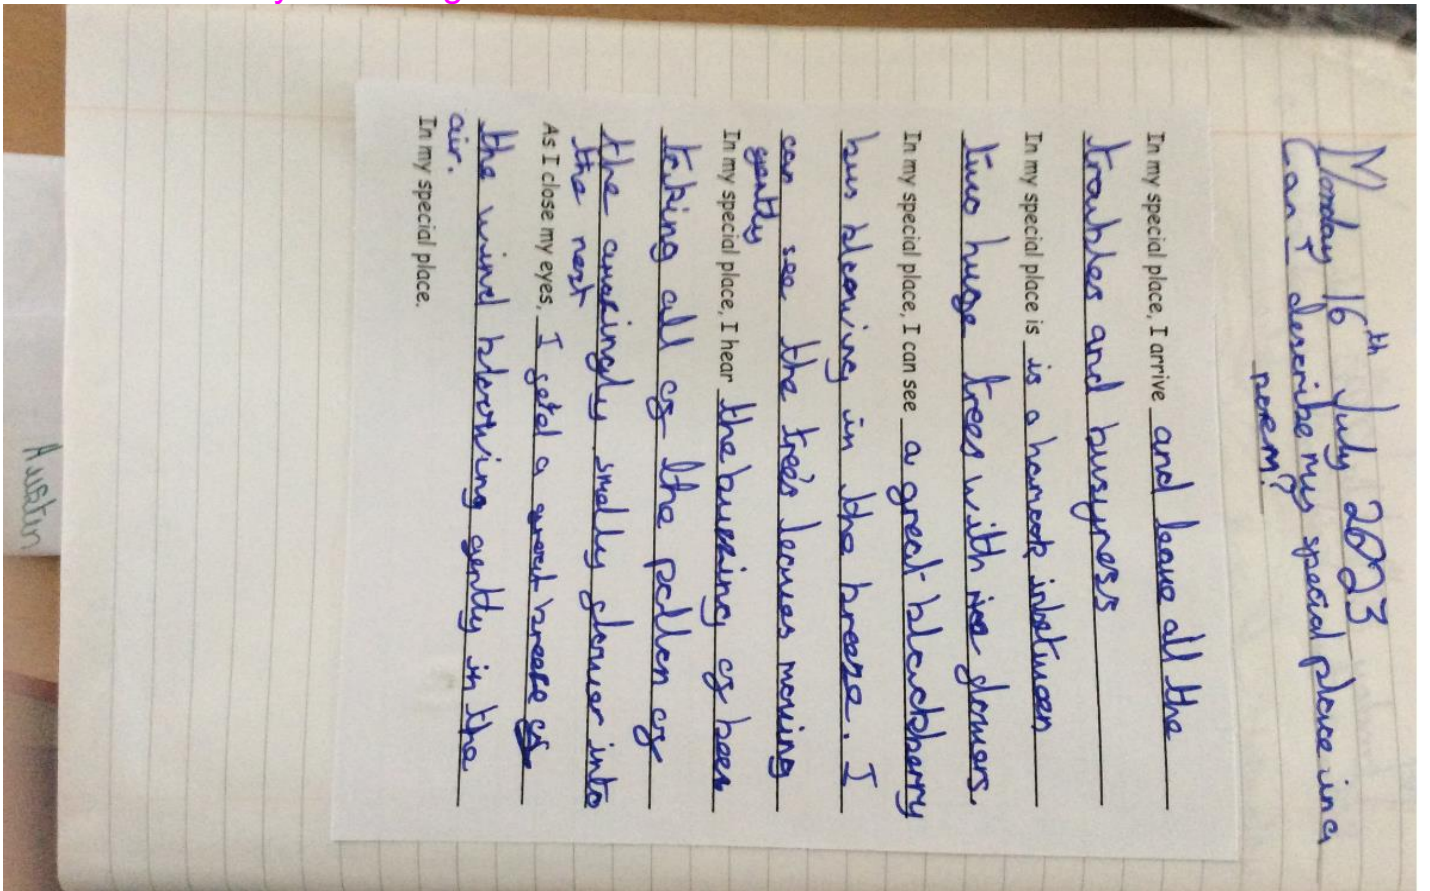 Monday 16th July 2023
Can I describe my special place in a
poem?
In my special place, I arrive and leave all the
troubles and busyness
In my special place is is a hamock inbetween
two huge trees with nice flowers.
In my special place, I can see a great blackberry
bus blowing in the breeze. I
can see the tree's leaves moving
gently
In my special place, I hear the buzzing of bees
taking all of the pollen of
the amazingly smelly flower into
the nest
As I close my eyes, I feel a great breeze of
the wind blowing gently in the
air.
In my special place.
Austin